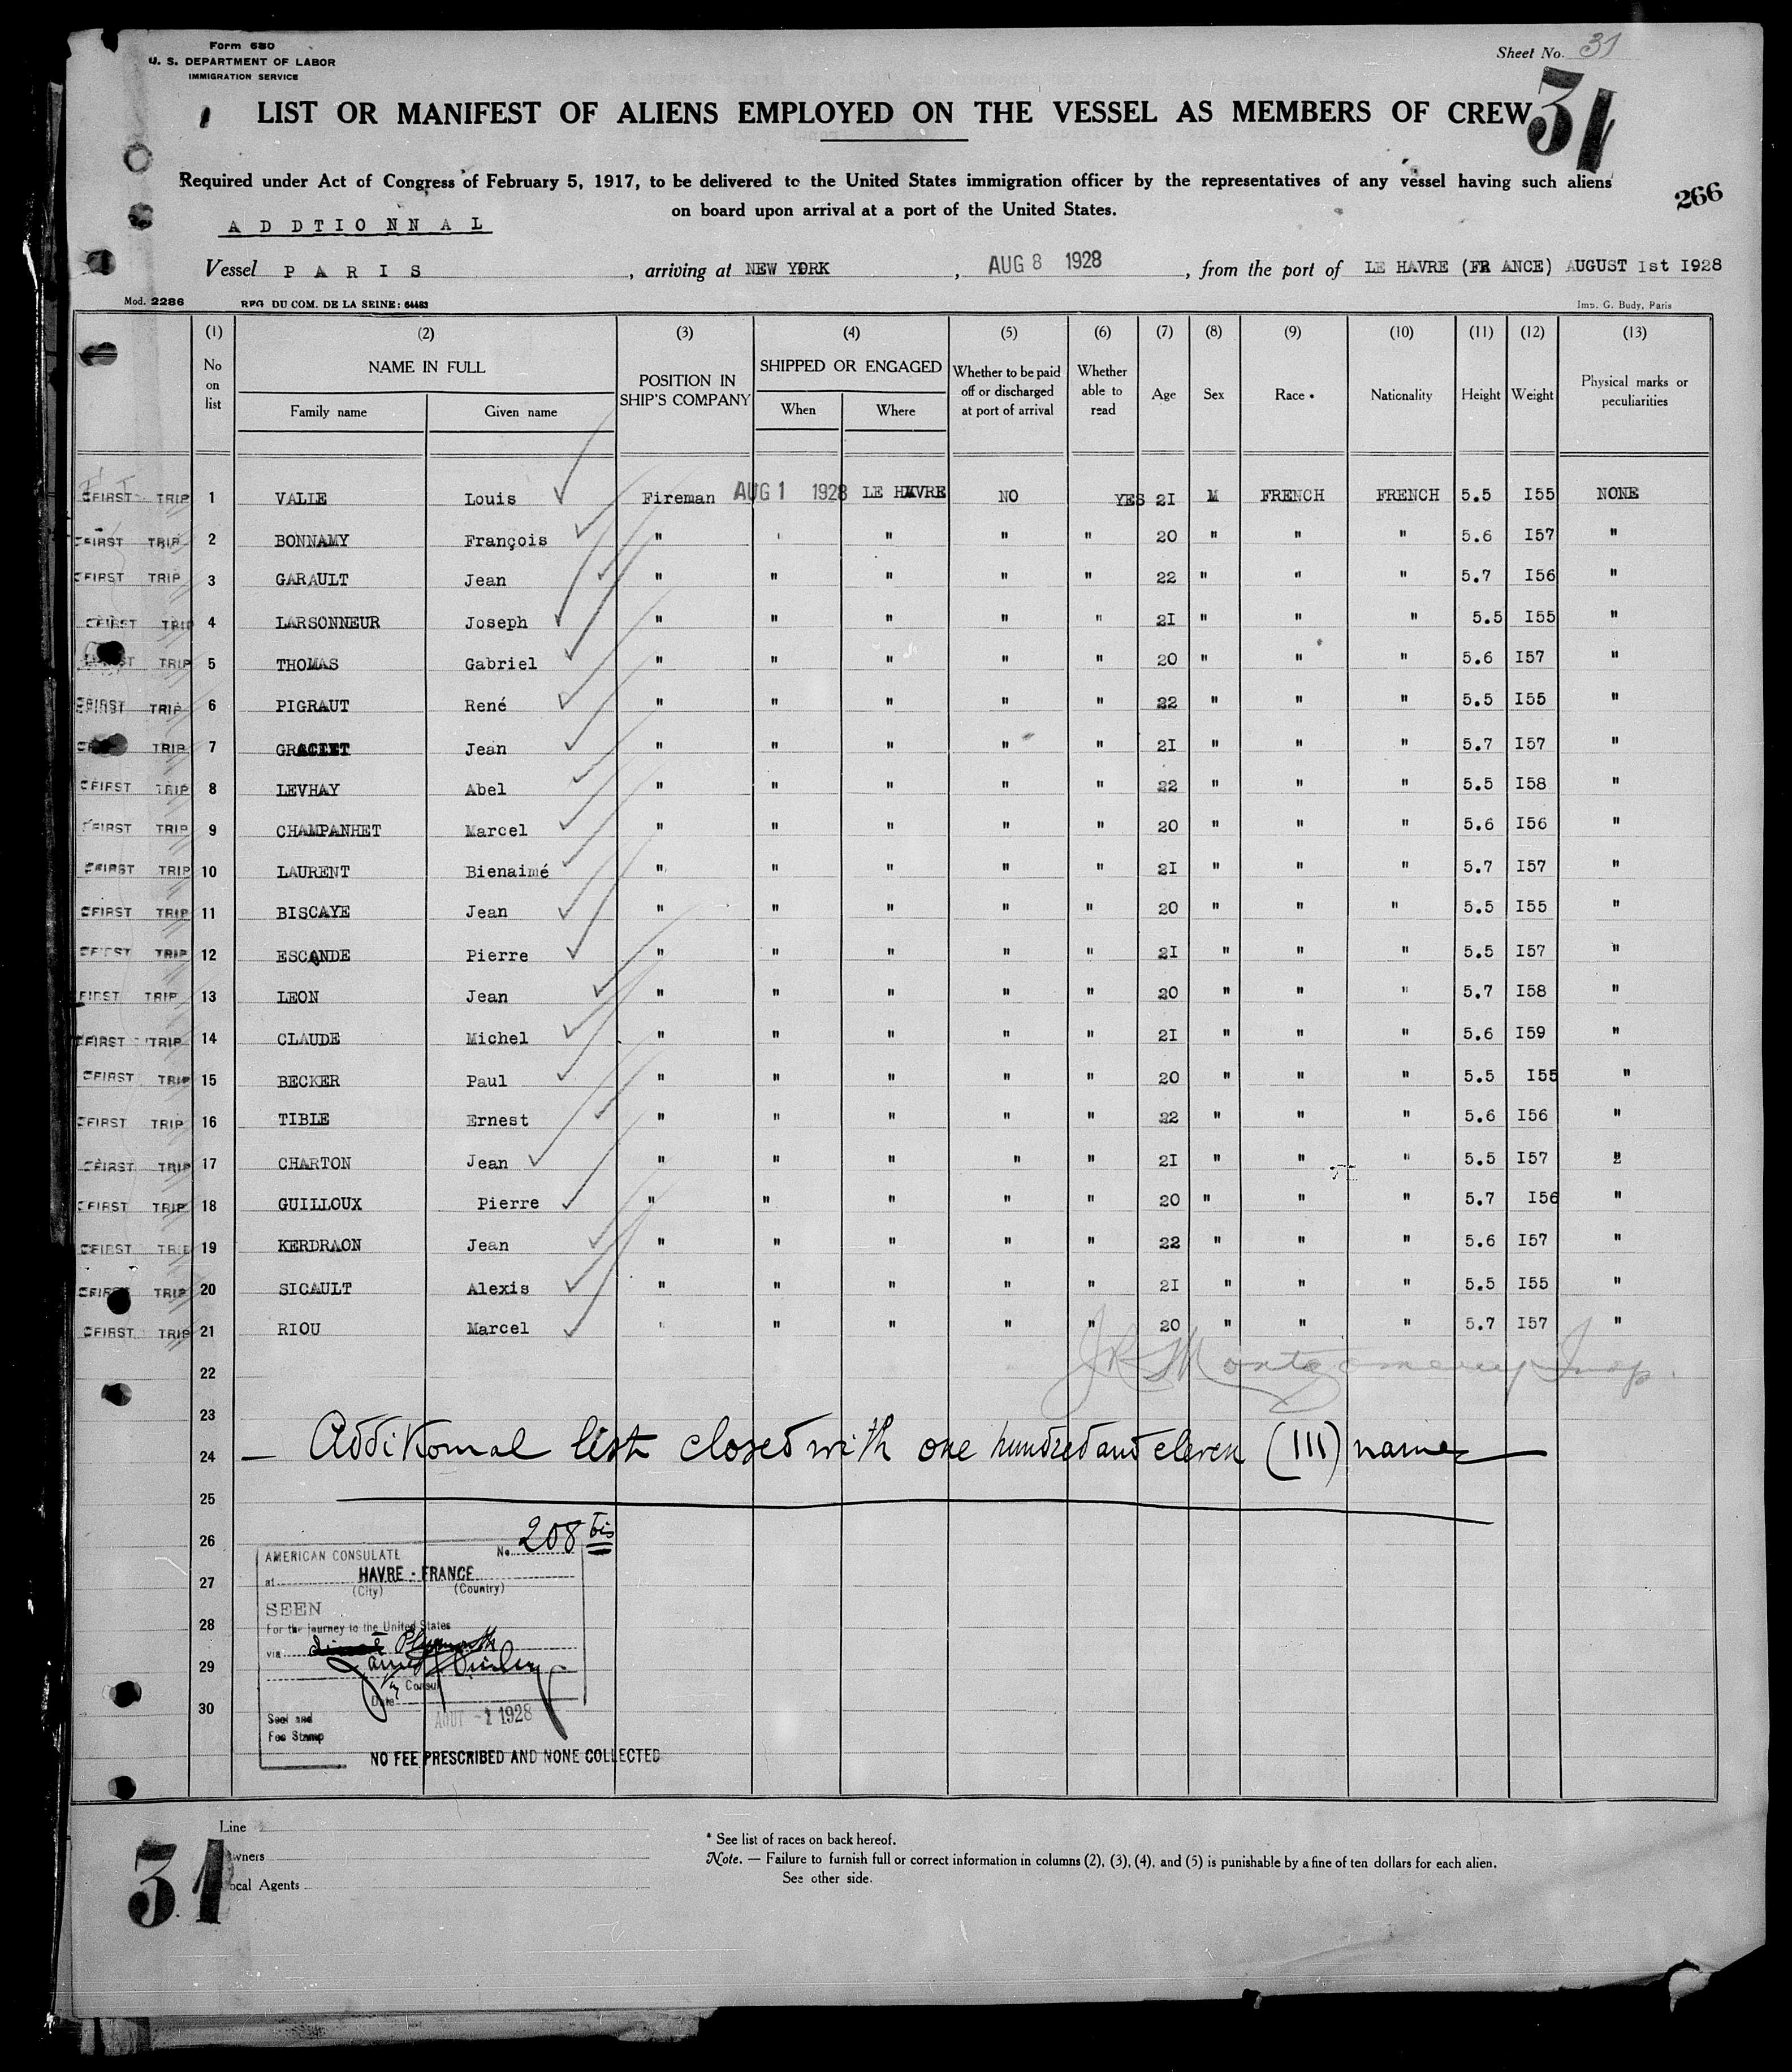 Form 680
U. S. DEPARTMENT OF LABOR
IMMIGRATION SERVICE
Sheet No. 31
LIST OR MANIFEST OF ALIENS EMPLOYED ON THE VESSEL AS MEMBERS OF CREW
31
Required under Act of Congress of February 5, 1917, to be delivered to the United States immigration officer by the representatives of any vessel having such aliens
266
on board upon arrival at a port of the United States.
A D D T I O N N A L
Vessel P A R I S , arriving at NEW YORK , AUG 8 1928 , from the port of LE HAVRE (FR ANCE) AUGUST 1st I928
Mod. 2286 REG DU COM. DE LA SEINE: 64483 Imp. G. Budy, Paris
(1) (2) (3) (4) (5) (6) (7) (8) (9) (10) (11) (12) (13)
No on list NAME IN FULL POSITION IN SHIP'S COMPANY SHIPPED OR ENGAGED Whether to be paid off or discharged at port of arrival Whether able to read Age Sex Race * Nationality Height Weight Physical marks or peculiarities
Family name Given name When Where
FIRST TRIP 1 VALIE Louis Fireman AUG 1 1928 LE HAVRE NO YES 2I M FRENCH FRENCH 5.5 I55 NONE
FIRST TRIP 2 BONNAMY François " " " " " 20 " " " 5.6 I57 "
FIRST TRIP 3 GARAULT Jean " " " " " 22 " " " 5.7 I56 "
FIRST TRIP 4 LARSONNEUR Joseph " " " " " 2I " " " 5.5 I55 "
FIRST TRIP 5 THOMAS Gabriel " " " " " 20 " " " 5.6 I57 "
FIRST TRIP 6 PIGRAUT René " " " " " 22 " " " 5.5 I55 "
TRIP 7 Jean " " " " " 2I " " " 5.7 I57 "
FIRST TRIP 8 LEVHAY Abel " " " " " 22 " " " 5.5 I58 "
FIRST TRIP 9 CHAMPANHET Marcel " " " " " 20 " " " 5.6 I56 "
FIRST TRIP 10 LAURENT Bienaimé " " " " " 2I " " " 5.7 I57 "
FIRST TRIP 11 BISCAYE Jean " " " " " 20 " " " 5.5 I55 "
FIRST TRIP 12 ESCANDE Pierre " " " " " 2I " " " 5.5 I57 "
FIRST TRIP 13 LEON Jean " " " " " 20 " " " 5.7 I58 "
FIRST TRIP 14 CLAUDE Michel " " " " " 2I " " " 5.6 I59 "
FIRST TRIP 15 BECKER Paul " " " " " 20 " " " 5.5 I55 "
FIRST TRIP 16 TIBLE Ernest " " " " " 22 " " " 5.6 I56 "
FIRST TRIP 17 CHARTON Jean " " " " " 2I " " " 5.5 I57 "
FIRST TRIP 18 GUILLOUX Pierre " " " " " 20 " " " 5.7 I56 "
FIRST TRIP 19 KERDRAON Jean " " " " " 22 " " " 5.6 I57 "
FIRST TRIP 20 SICAULT Alexis " " " " " 2I " " " 5.5 I55 "
FIRST TRIP 21 RIOU Marcel " " " " " 20 " " " 5.7 I57 "
22 J R Montgomery Insp.
23
24 — Additional list closed with one hundred and eleven (111) names —
25
26 No. 208 bis
AMERICAN CONSULATE
27 at HAVRE - FRANCE
(City) (Country)
SEEN
28 For the journey to the United States
via Plymouth
29
Consul
Date
30 AOUT -1 1928
Seal and
Fee Stamp
NO FEE PRESCRIBED AND NONE COLLECTED
Line
* See list of races on back hereof.
Owners
Note. — Failure to furnish full or correct information in columns (2), (3), (4), and (5) is punishable by a fine of ten dollars for each alien.
See other side.
Local Agents
31